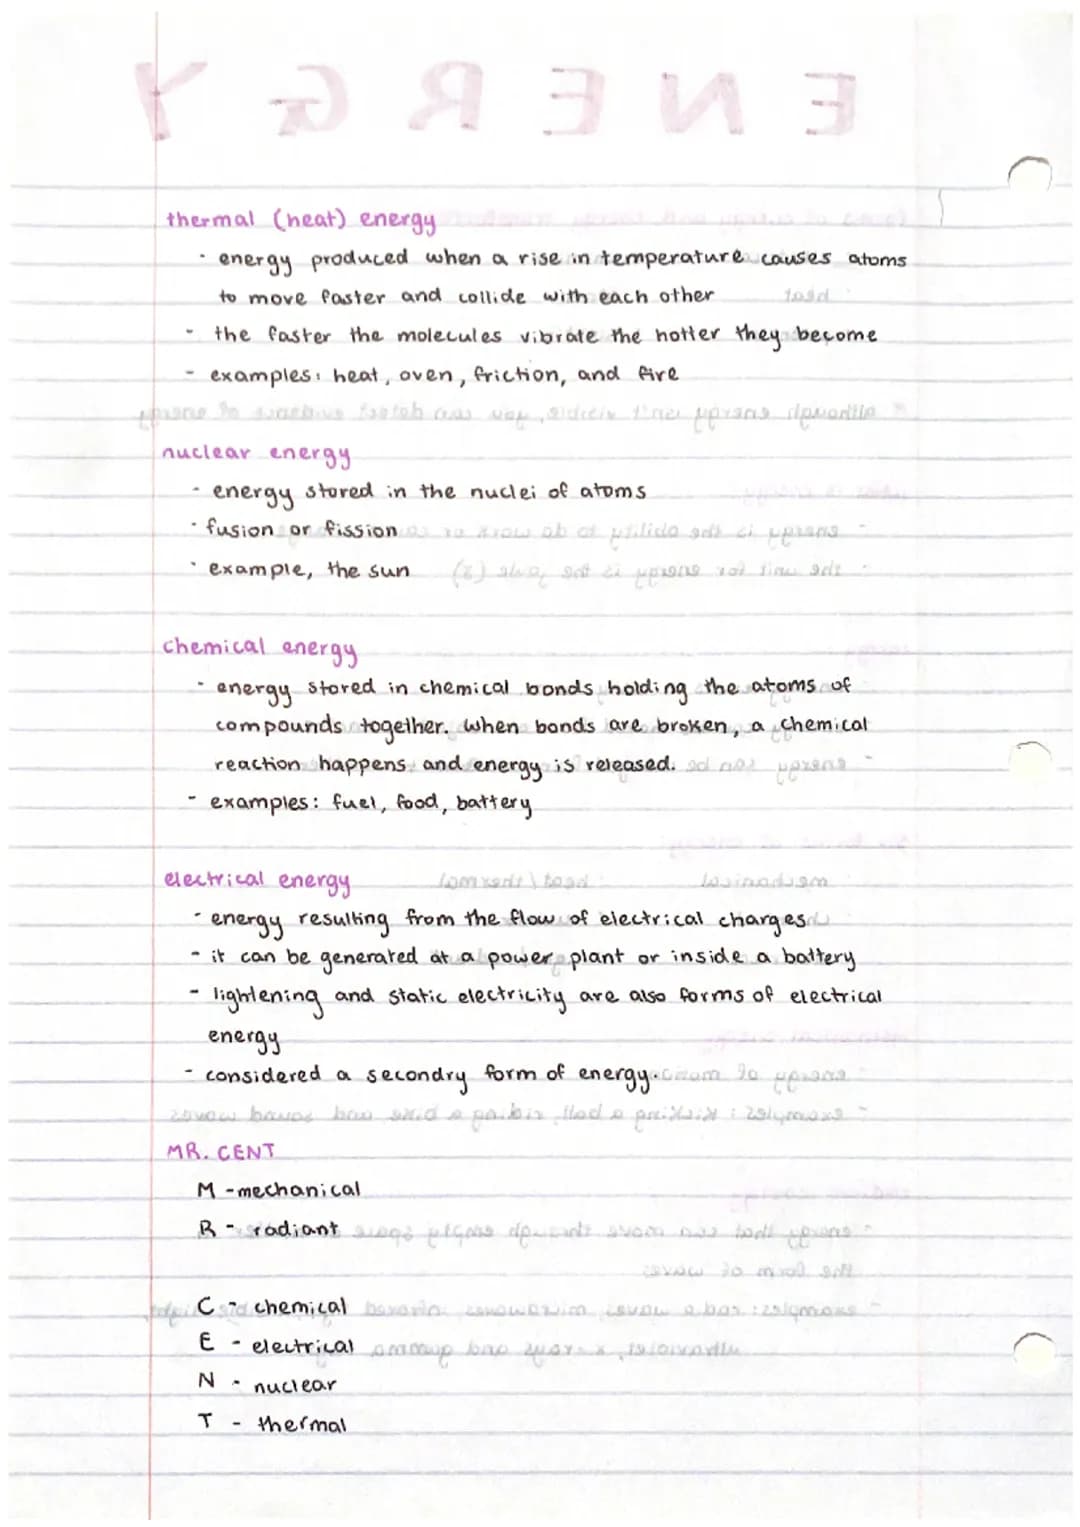 thermal (heat) energy
- energy produced when a rise in temperature causes atoms
to move faster and collide with each other
- the faster the molecules vibrate the hotter they become
- examples: heat, oven, friction, and fire
nuclear energy
- energy stored in the nuclei of atoms
- fusion or fission
- example, the sun
chemical energy
- energy stored in chemical bonds holding the atoms of
compounds together. when bonds are broken, a chemical
reaction happens and energy is released.
- examples: fuel, food, battery
electrical energy
- energy resulting from the flow of electrical charges
- it can be generated at a power plant or inside a battery
- lightening and static electricity are also forms of electrical
energy
- considered a secondry form of energy.
MR. CENT
M - mechanical
R - radiant
C - chemical
E - electrical
N - nuclear
T - thermal